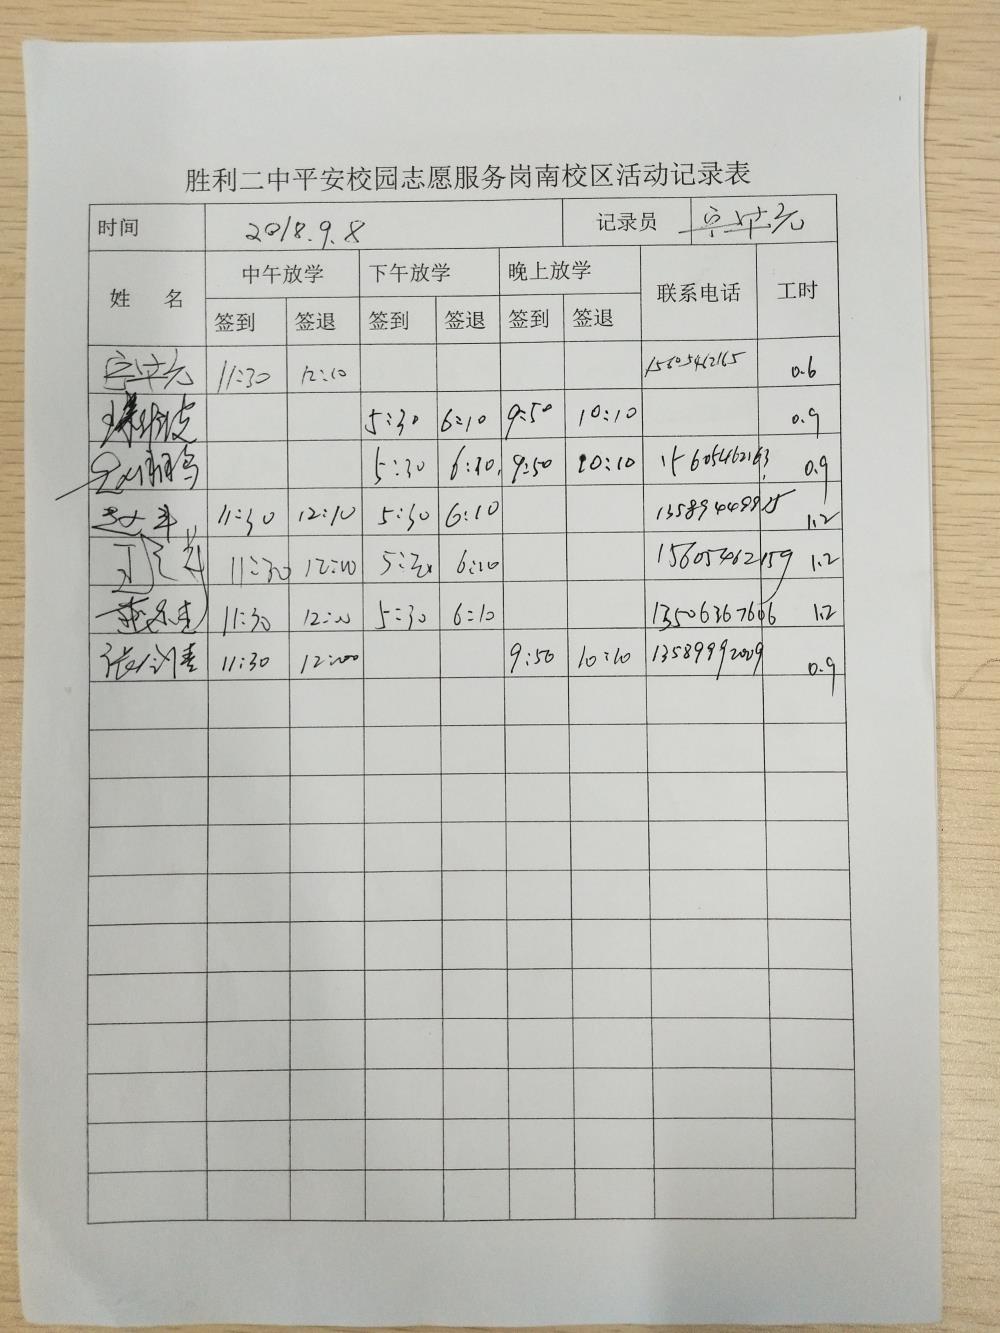 胜利二中平安校园志愿服务岗南校区活动记录表
时间 2018.9.8 记录员
姓 名 中午放学 下午放学 晚上放学 联系电话 工时
签到 签退 签到 签退 签到 签退
11:30 12:10 15605462165 0.6
5:30 6:10 9:50 10:10 0.9
5:30 6:10 9:50 10:10 15605462163 0.9
11:30 12:10 5:30 6:10 1.2
11:30 5:30 6:10 15605462159 1.2
11:30 5:30 6:10 13506367606 1.2
张剑青 11:30 9:50 10:10 13589992009 0.9